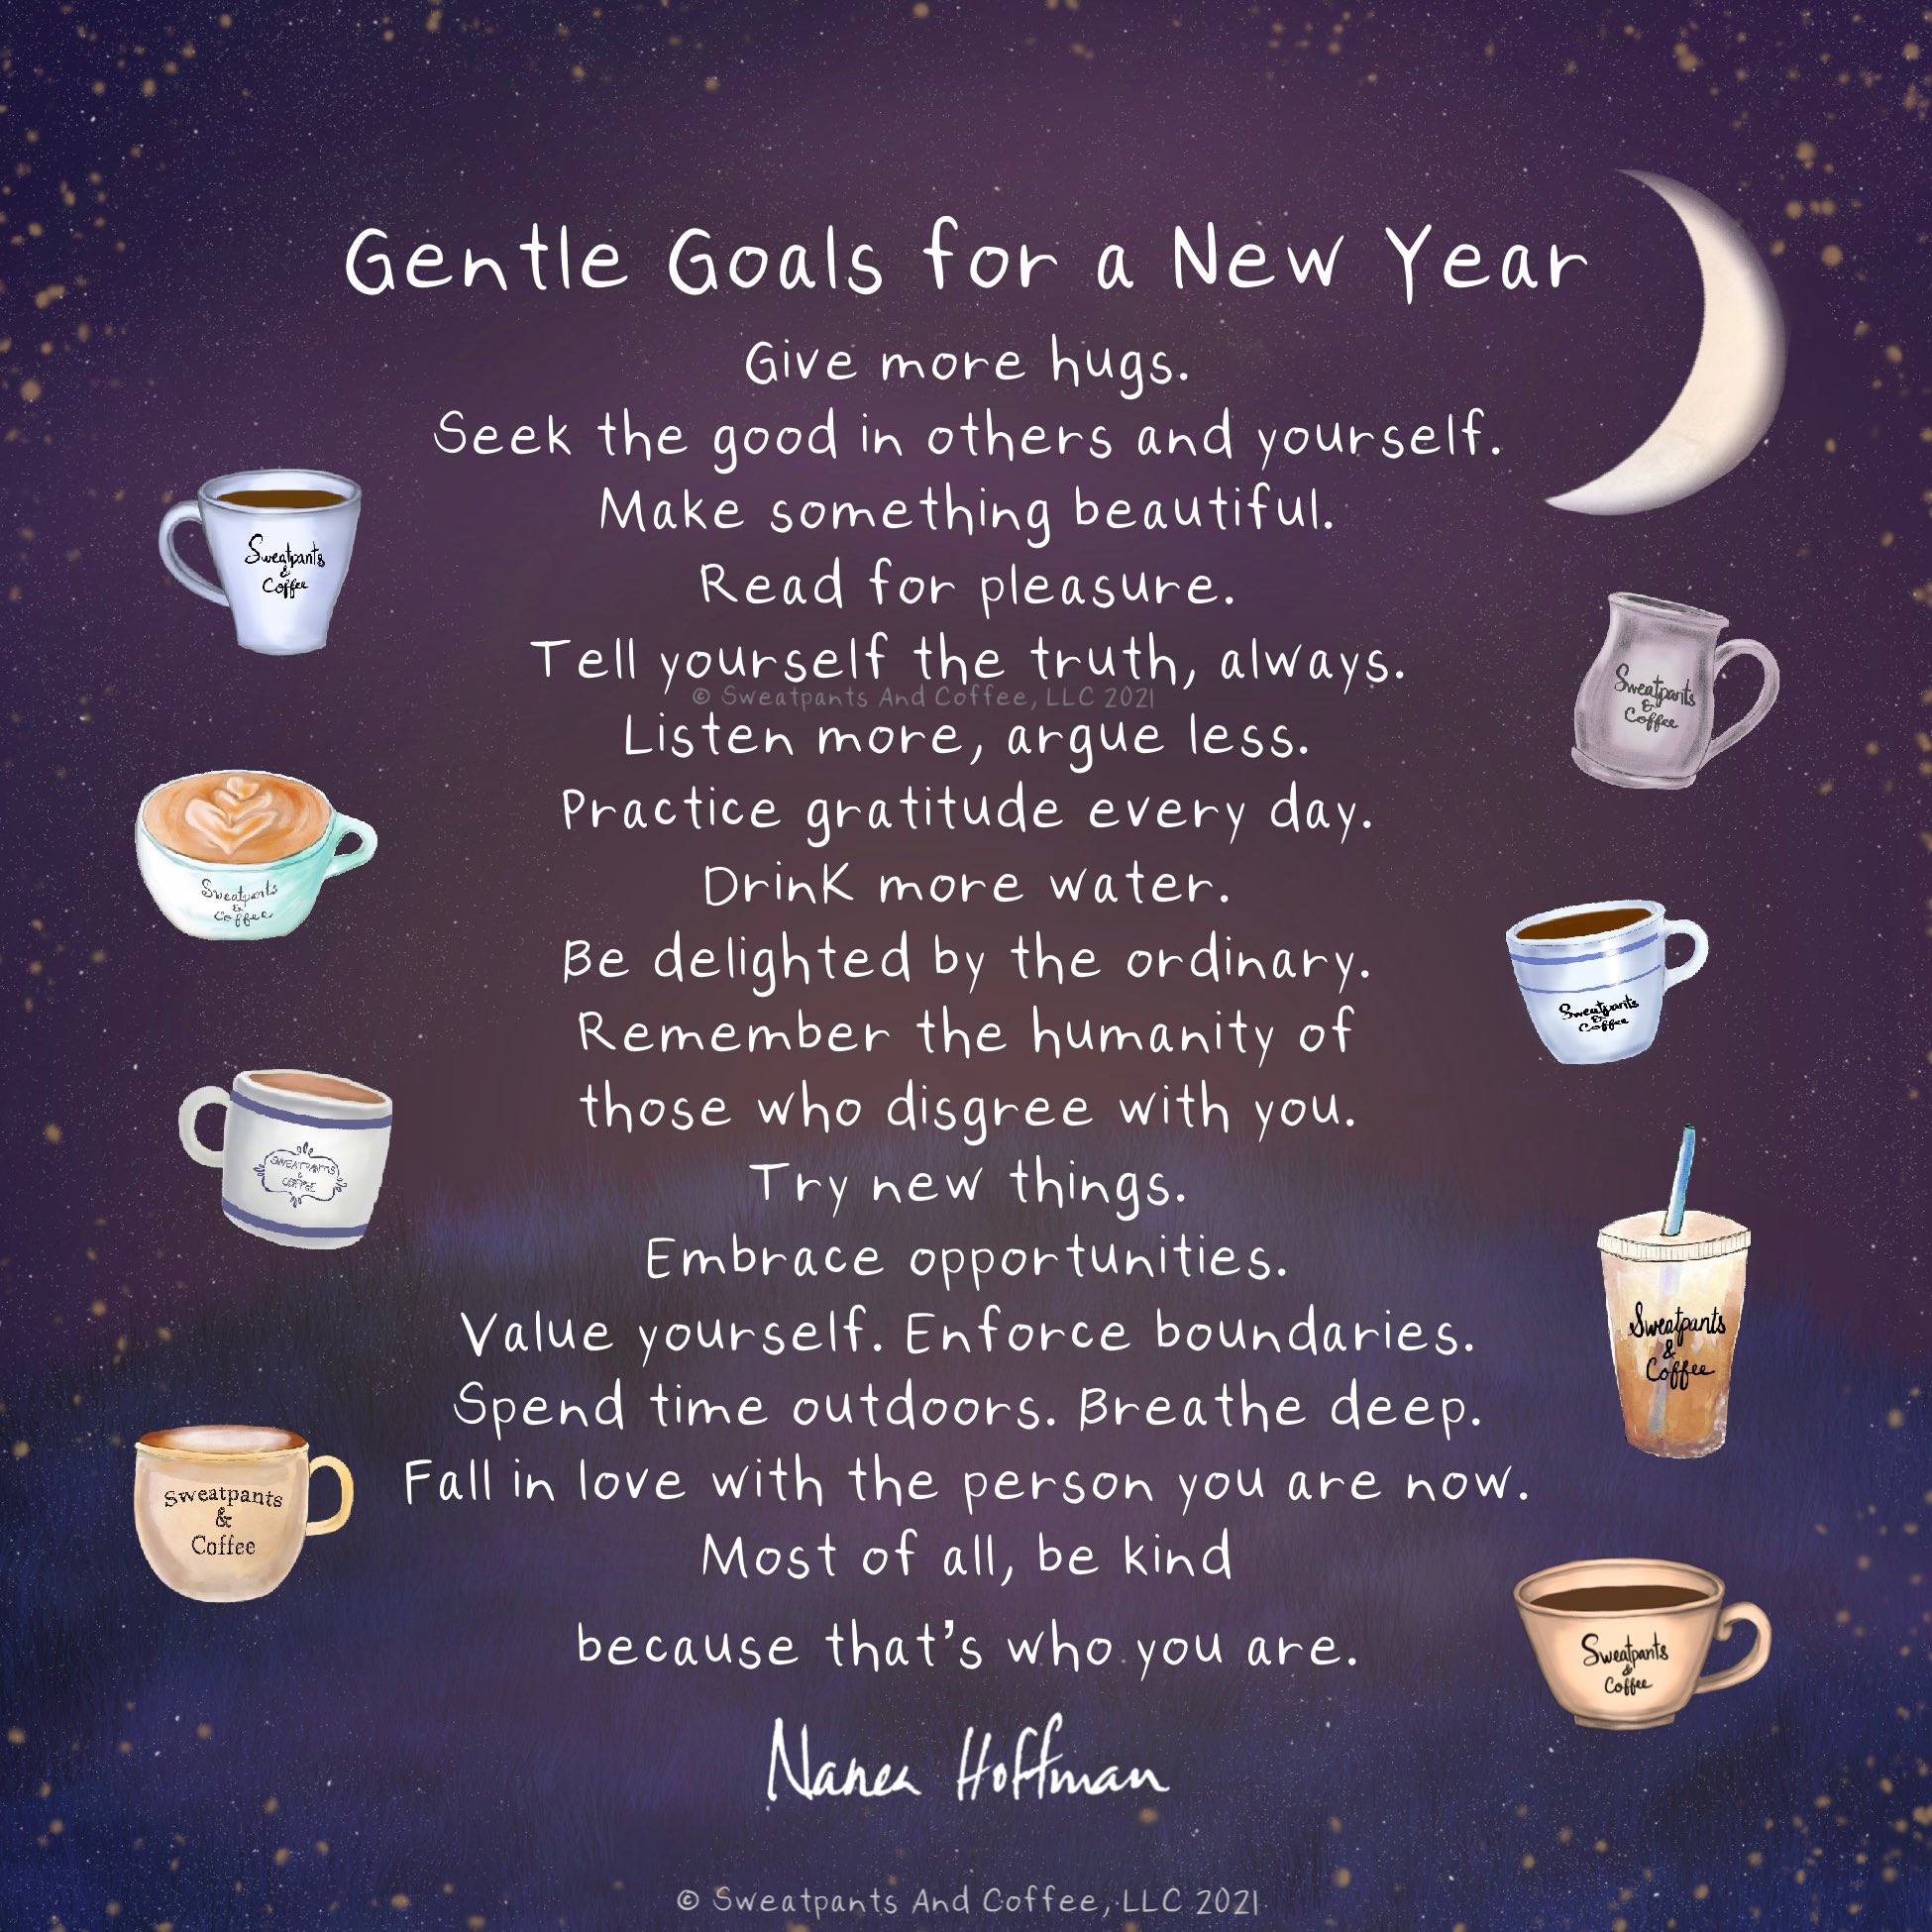 Gentle Goals for a New Year
Give more hugs.
Seek the good in others and yourself.
Make something beautiful.
Read for pleasure.
Tell yourself the truth, always.
© Sweatpants And Coffee, LLC 2021
Listen more, argue less.
Practice gratitude every day.
Drink more water.
Be delighted by the ordinary.
Remember the humanity of
those who disgree with you.
Try new things.
Embrace opportunities.
Value yourself. Enforce boundaries.
Spend time outdoors. Breathe deep.
Fall in love with the person you are now.
Most of all, be kind
because that's who you are.
Nanea Hoffman
© Sweatpants And Coffee, LLC 2021
Sweatpants
&
Coffee
Sweatpants
&
Coffee
SWEATPANTS
&
COFFEE
Sweatpants
&
Coffee
Sweatpants
&
Coffee
Sweatpants
&
Coffee
Sweatpants
&
Coffee
Sweatpants
&
Coffee